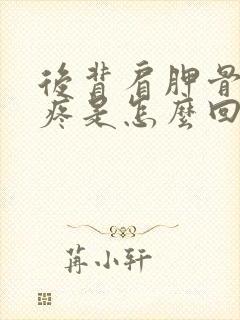 後背肩胛骨
疼是怎麼回
苒小轩